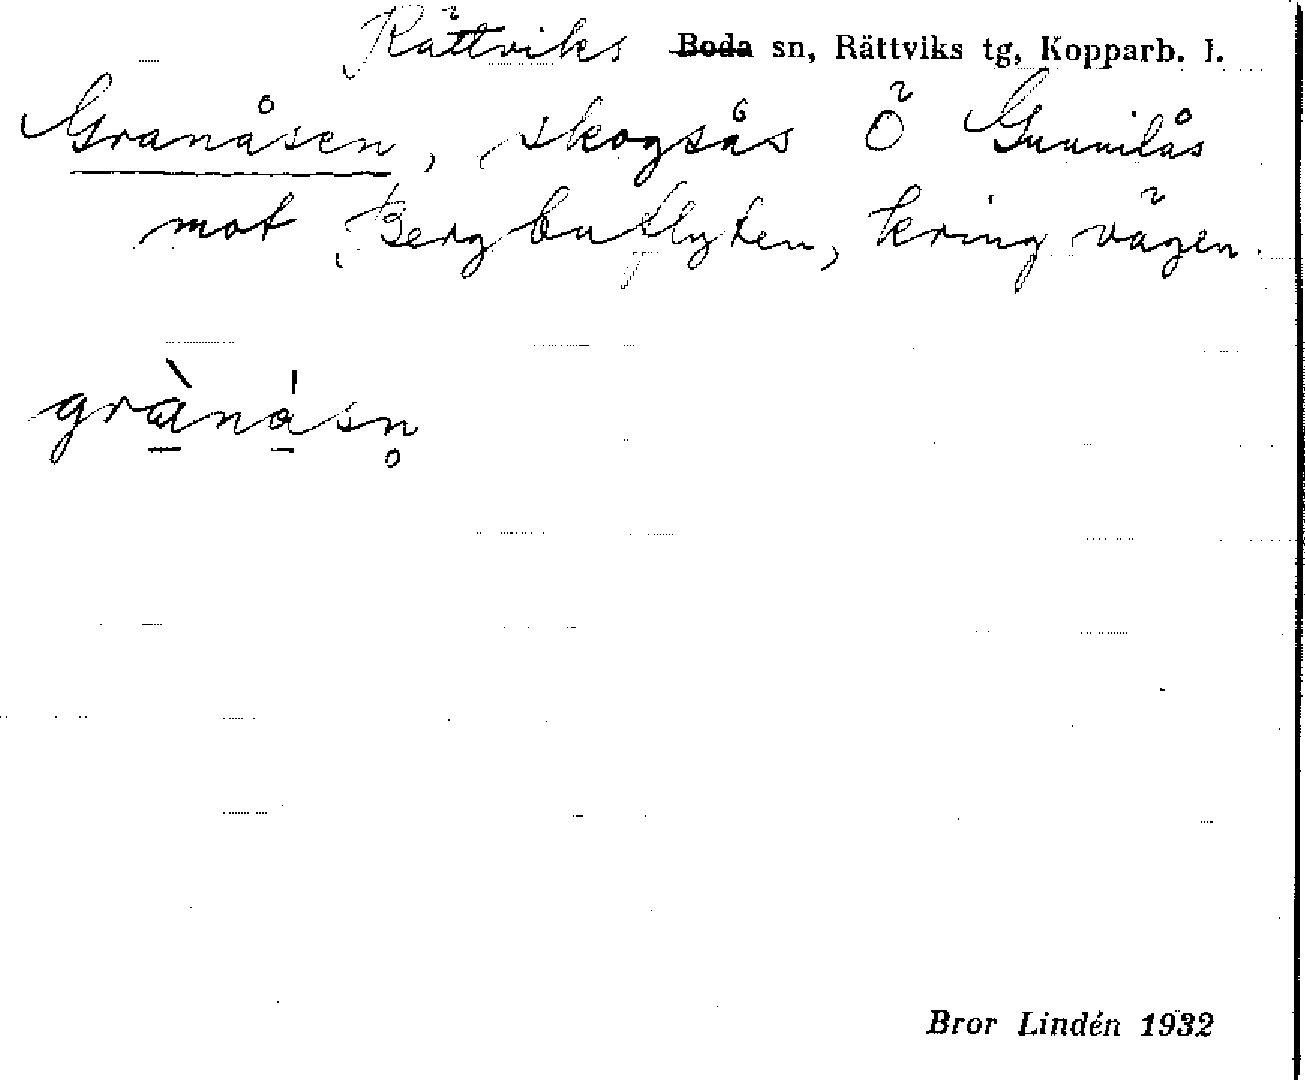 Rättviks Boda sn, Rättviks tg, Kopparb. l.
Granåsen, skogsås Ö Gunnilås
mot Bergbuflyten, kring vägen.
grànåsn̥
Bror Lindén 1932